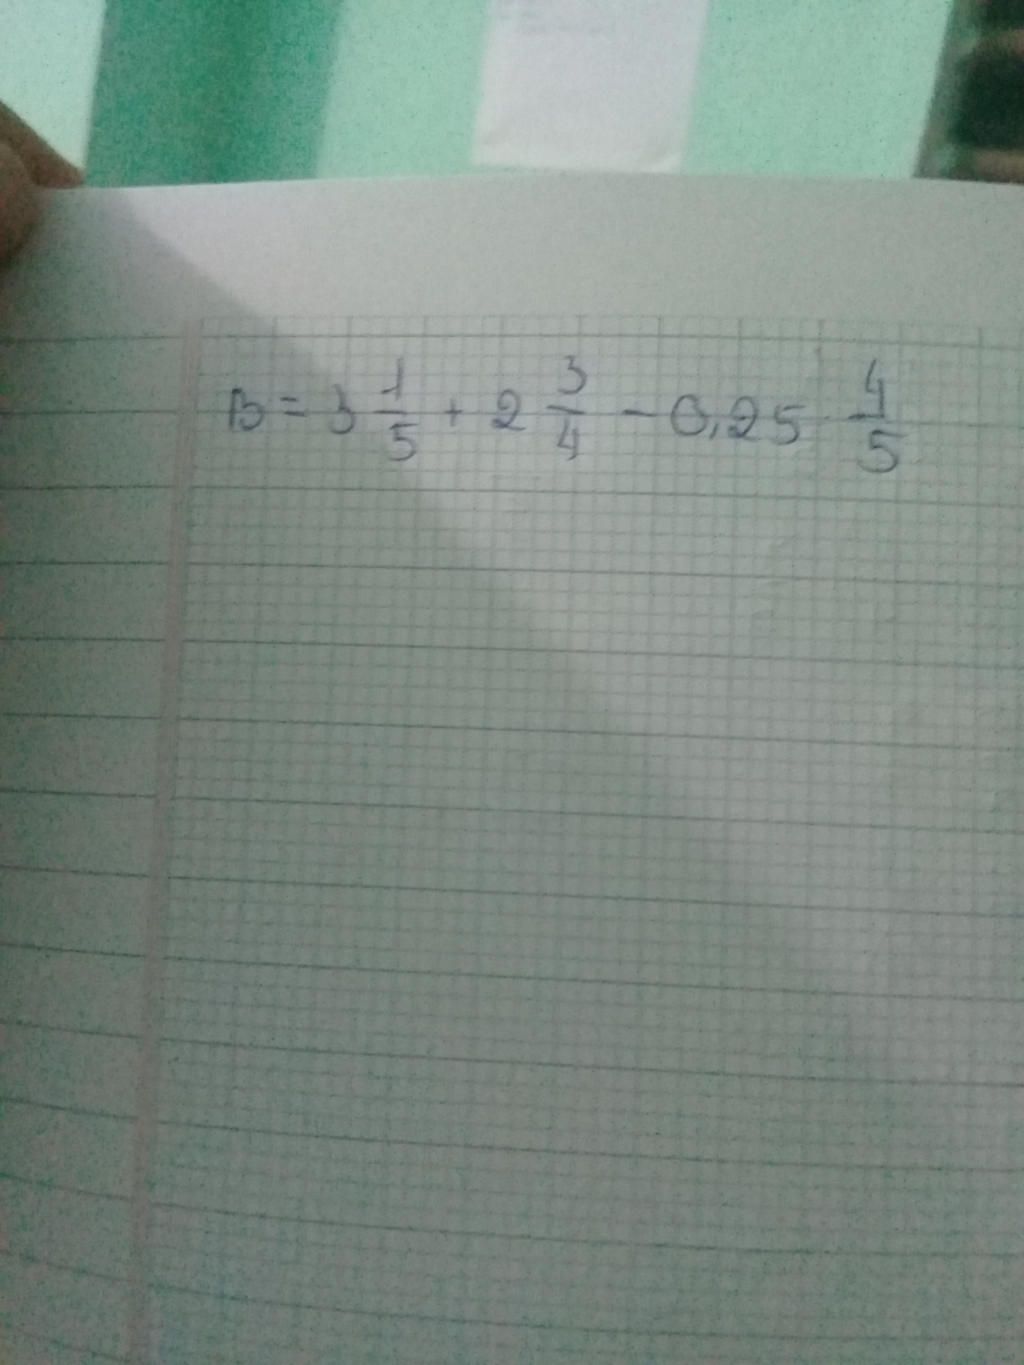 B = 3 1/5 + 2 3/4 - 0,25 · 4/5